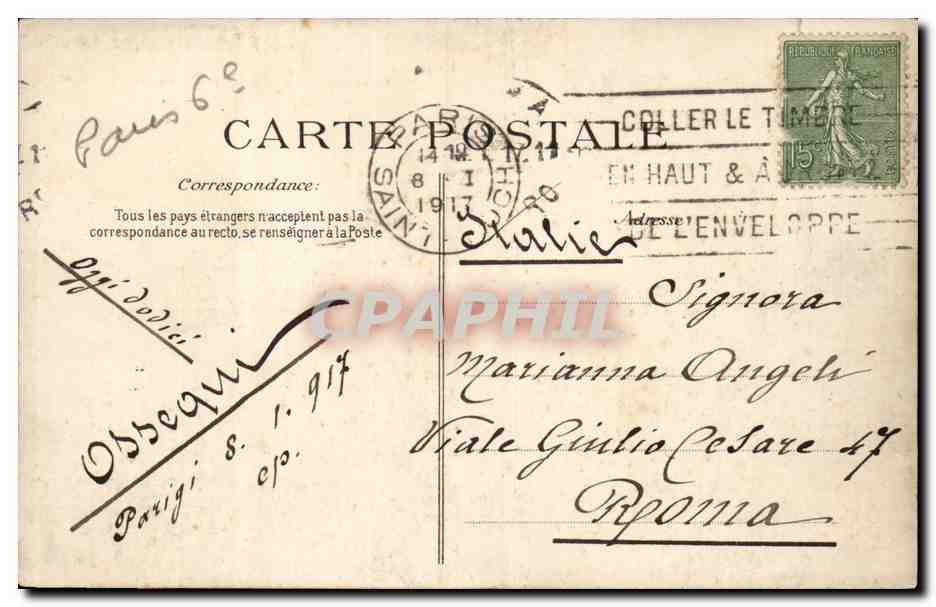 Paris 6e
CARTE POSTALE
Correspondance:
Tous les pays étrangers n'acceptent pas la
correspondance au recto, se renseigner à la Poste
Oggi dodici
Ossequi
Parigi 8. 1. 917
cp.
REPUBLIQUE FRANÇAISE
15c
PARIS
8 I
1917
SAINT
COLLER LE TIMBRE
EN HAUT & À
DE L'ENVELOPPE
Adresse
Italie
Signora
Marianna Angeli
Viale Giulio Cesare 47
Roma
CPAPHIL